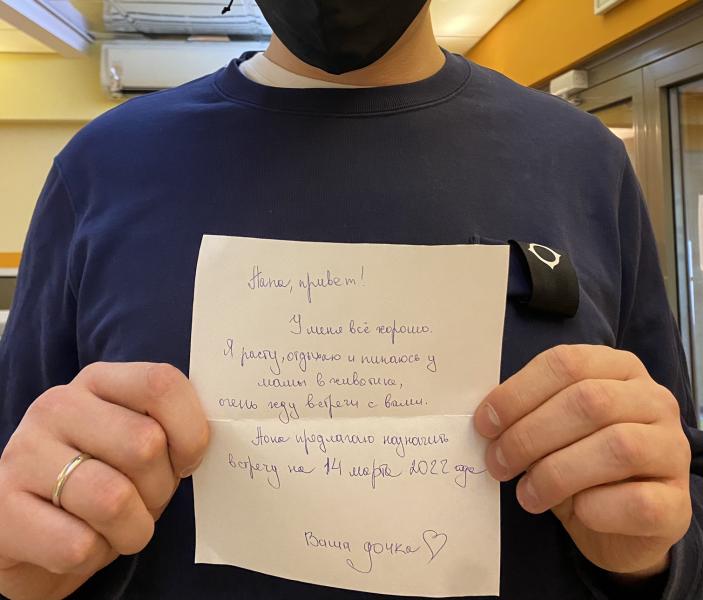 Папа, привет!
У меня всё хорошо.
Я расту, отдыхаю и пинаюсь у
мамы в животике,
очень жду встречи с вами.
Пока предлагаю назначить
встречу на 14 марта 2022 года
Ваша дочка ♡